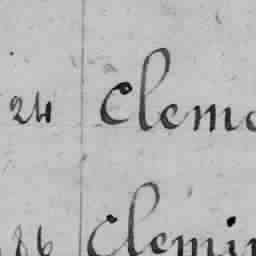 24 Cleme
86 Clemin